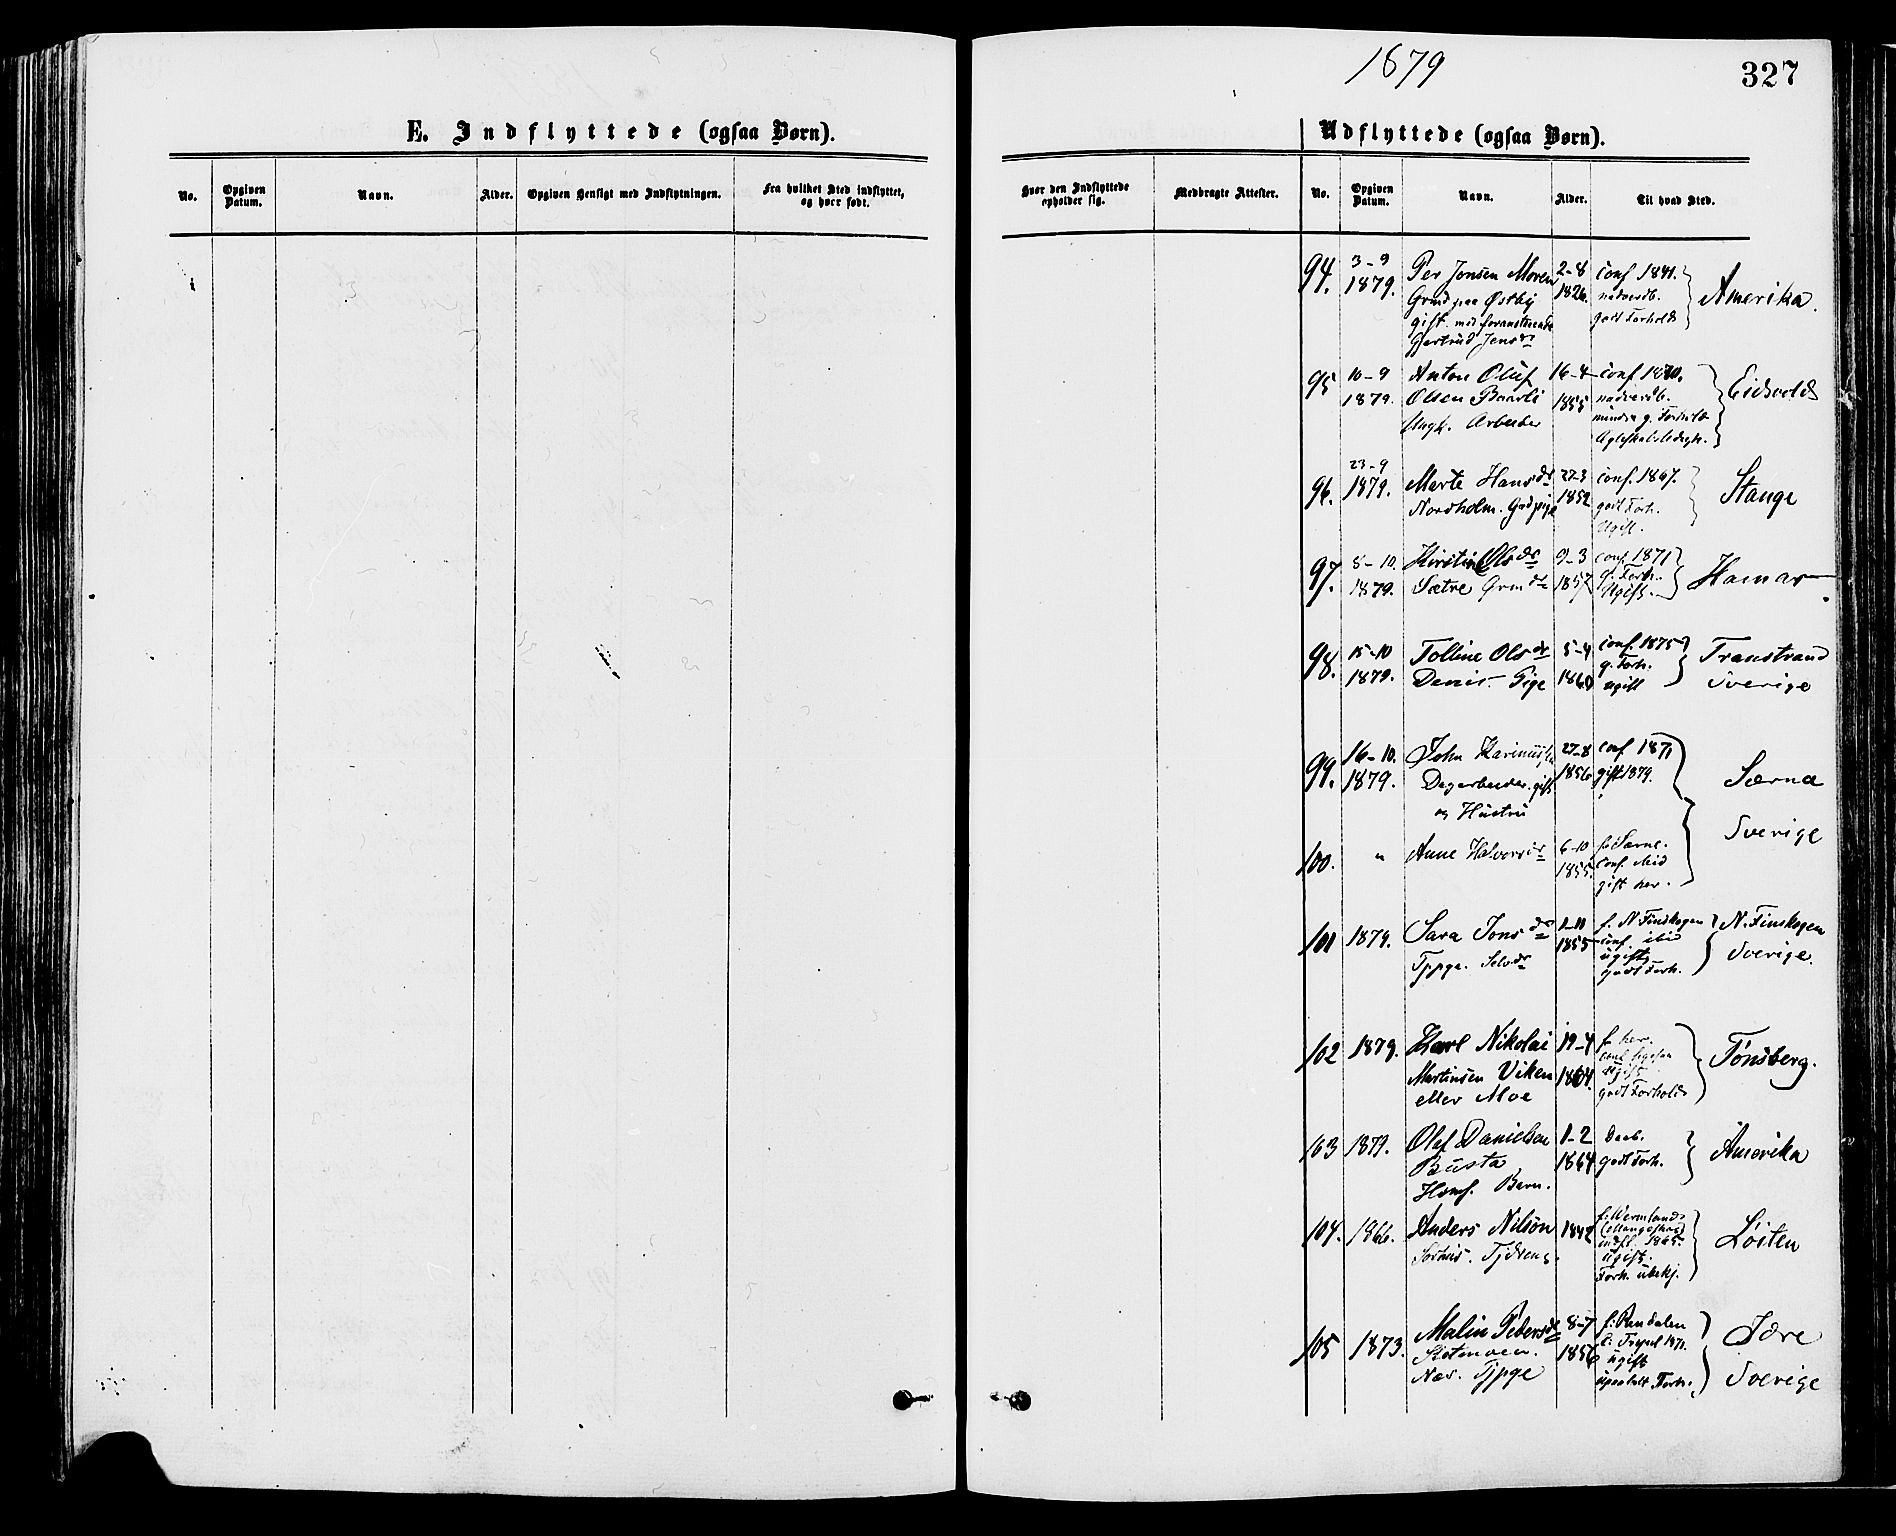 1879
327
E. Indflyttede (ogsaa Børn).
Udflyttede (ogsaa Børn).
No.
Opgiven Datum.
Navn.
Alder.
Opgiven Hensigt med Indflytningen.
Fra hvilket Sted indflyttet, og hvor født.
Hvor den Indflyttede opholder sig.
Medbragte Attester.
No.
Opgiven Datum.
Navn.
Alder.
Til hvad Sted.
94. 3-9 1879. Per Jonsen Moren 2-8 1826. conf 1841. Amerika.
Grmd paa Østby nadverdb.
gift med foranstaaende godt Forhold
Gjertrud Jensdr
95 10-9 1879. Anton Oluf 16-4 1855 conf 1870. Eidsvold
Olsen Baarli nadverdb.
Ungk. Arbeider mindre g. Forhold
96. 23-9 1879. Marte Hansdr 22-3 1852 conf. 1867. Stange
Nordholm. Gdpige godt Forh.
Ugift.
97. 8-10. 1879. Kirstin Olsdr 9-3 1857 conf 1871 Hamar
Sætre Grmdr g. Forh.
Ugift.
98. 15-10 1879. Tolline Olsdr 5-4 1860 conf. 1875 Transtrand
Pige g. Forh. Sverige
ugift
99. 16-10. 1879. John 27-8 1856 conf 1871 Særna
Dagarbeider. gift gift 1879.
og Hustru Sverige
100. " Anne Halvorsdr 6-10 1855. f. Særne.
conf. ibid
gift her.
101 1879. Sara Jonsdr 1-11 1855 f. N. Finskogen N. Finskogen
Tjpge. conf. ibid Sverige.
ugift
godt Forh.
102 1879. Karl Nikolai 19-4 1864. f. her. Tønsberg.
Martinsen Viken conf. ligesaa
eller Moe ugift
godt Forhold
103 1879. Olaf Danielsen 1-2 1864 Daab. Amerika
Busta godt Forh.
Barn.
104. 1866. Anders Nilson 1842 f. Wermland Løiten
Tjdreng. indfl. 1865
ugift.
Forh. ubekj.
105 1873. Malin Pedersdr 8-7 1856 f. Rendalen Idre
c. Trysil 1871.
Tjpge ugift Sverige
upaaklt Forh.